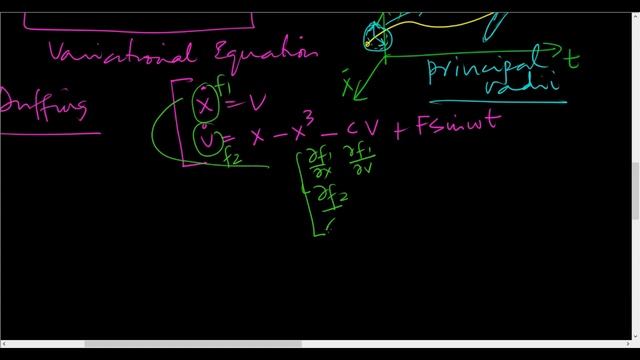 Variational Equation
principal radii
t
ẋ
Duffing
f1
ẋ = v
v̇ = x - x³ - cv + Fsinωt
f2
∂f1/∂x ∂f1/∂v
∂f2